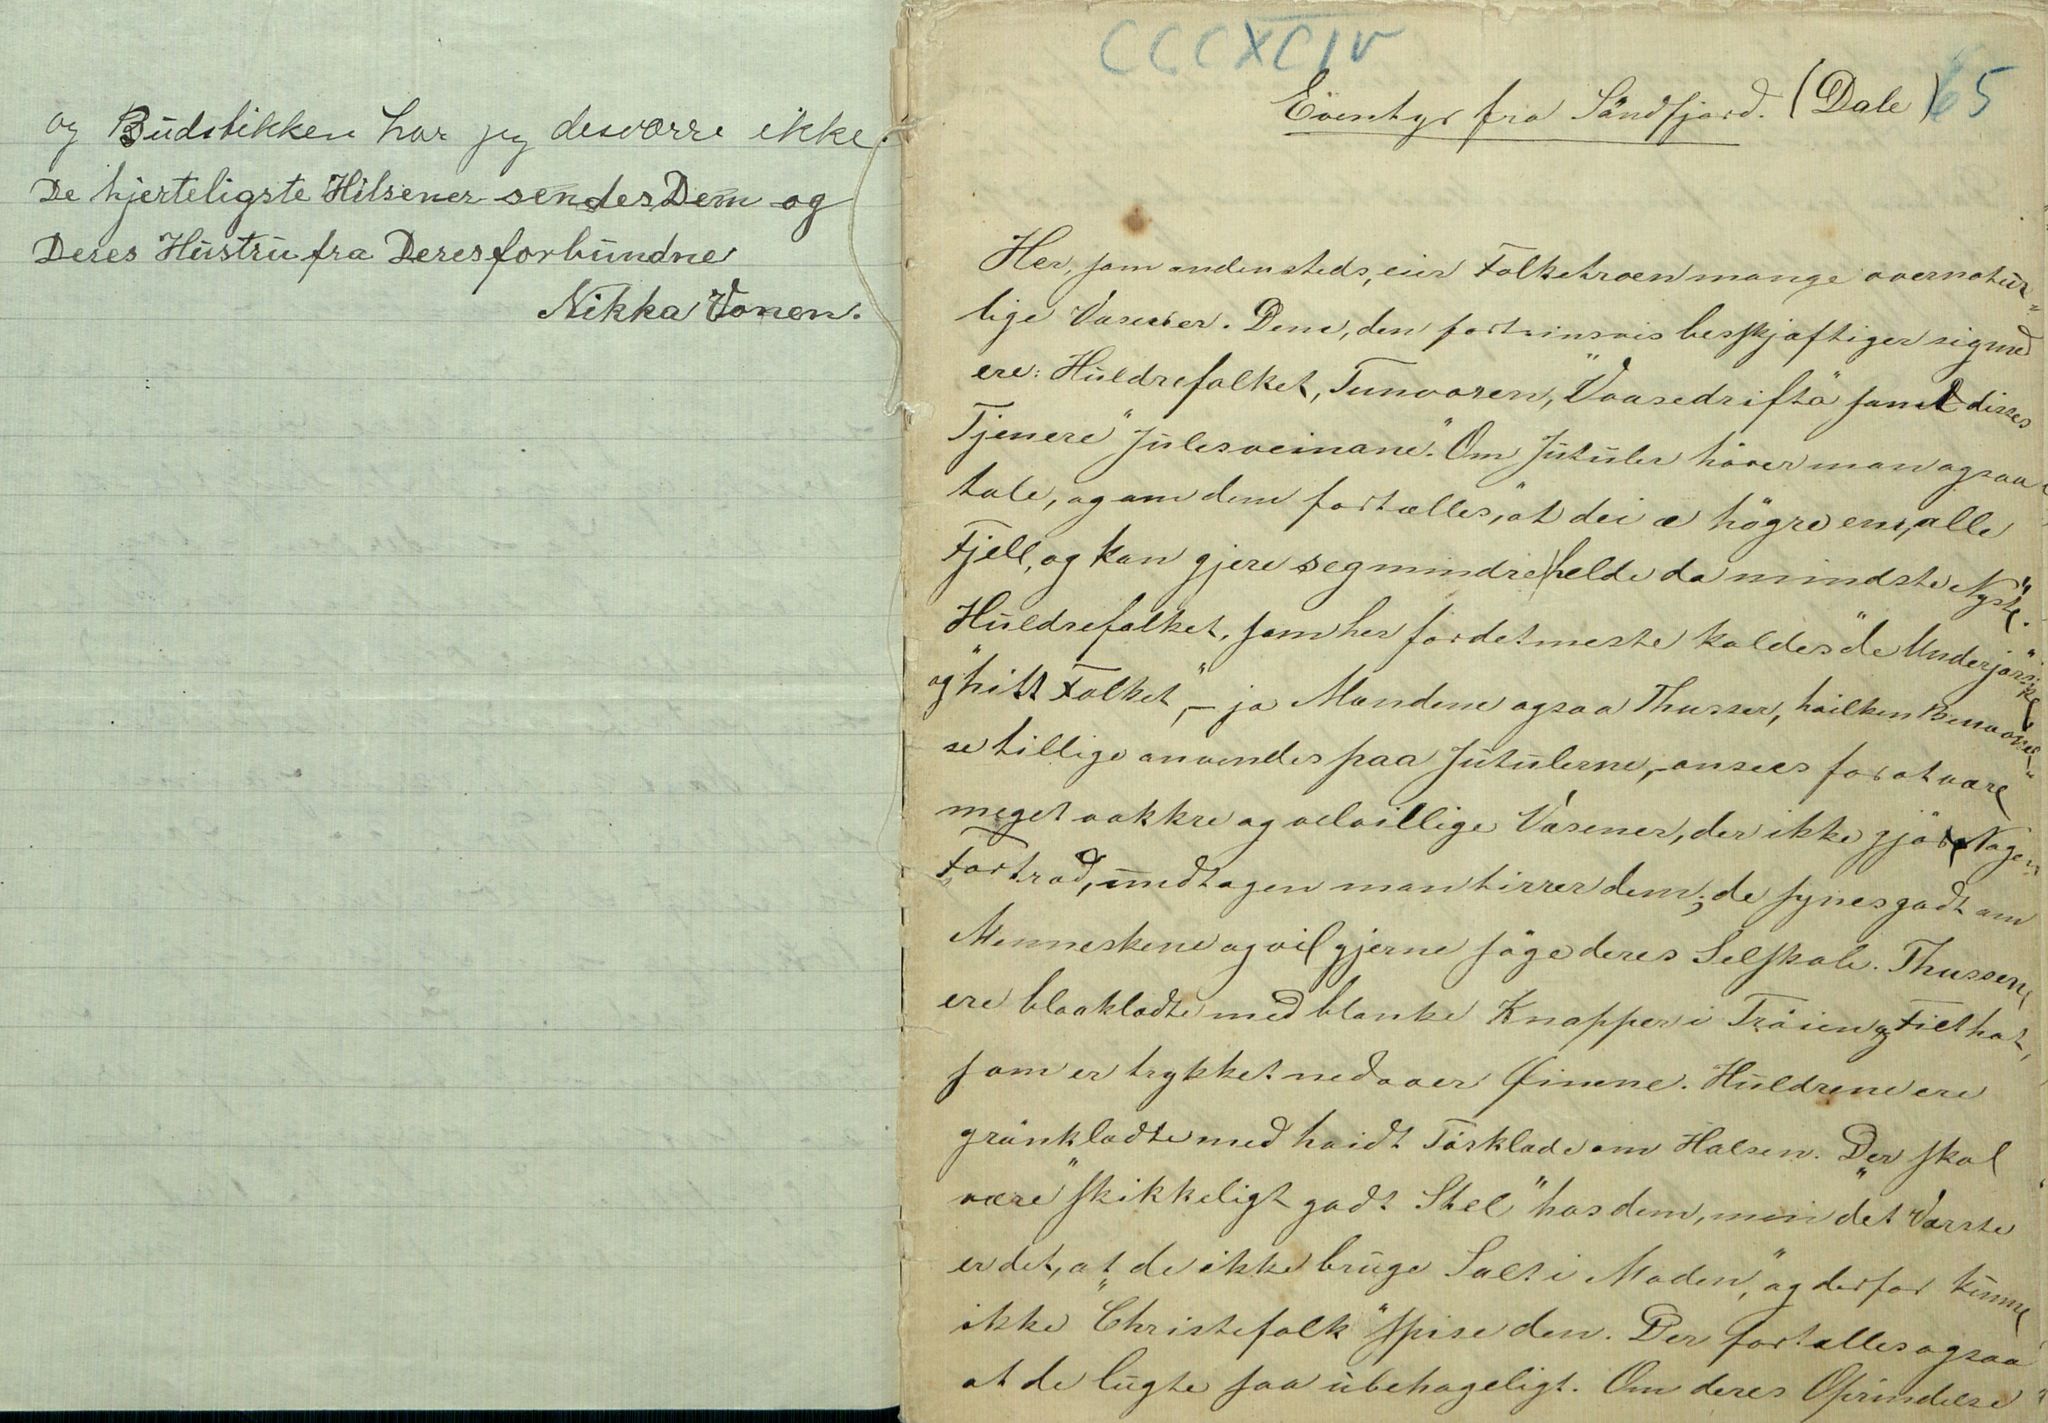 og Budstikken har jeg desværre ikke.
De hjerteligste Hilsener sendes Dem og
Deres Hustru fra Deres forbundne
Nikka Vonen.
CCCXCIV
65
Eventyr fra Söndfjord. (Dale)
Her, som andensteds, eier Folketroen mange overnatur-
lige Væsener. Dem, den fortrinsvis beskjæftiger sig med
ere: Huldrefolket, Tunvoren, "Vaasedrifta" samt disses
Tjenere "Julesveinane". Om Jutuler hörer man ogsaa
tale, og om dem fortælles, "at dei æ högre enn alle
Fjell, og kan gjere seg mindre helde da mindste Nyste".
Huldrefolket, som her for det meste kaldes "de Underjordiske"
og "hitt Folket", – ja Mændene ogsaa Thusser, hvilken Benævnel-
se tillige anvendes paa Jutulerne, – ansees for at være
meget vakkre og velvillige Væsener, der ikke gjöre Nogen
Fortræd, medtagen man tirrer dem; de synes godt om
Menneskene og vil gjerne söge deres Selskab. Thussene
ere blaaklædte med blanke Knapper i Tröien og Filthat,
som er trykket ned over Öinene. Huldrene ere
grönklædte med hvidt Törklæde om Halsen. Der skal
være "skikkeligt godt Stel" hos dem, men "det Værste
er det, at de ikke bruge Salt i Maden", og derfor kunne
ikke "Christefolk" spise den. Der fortælles ogsaa
at de lugte saa ubehageligt. Om deres Oprindelse